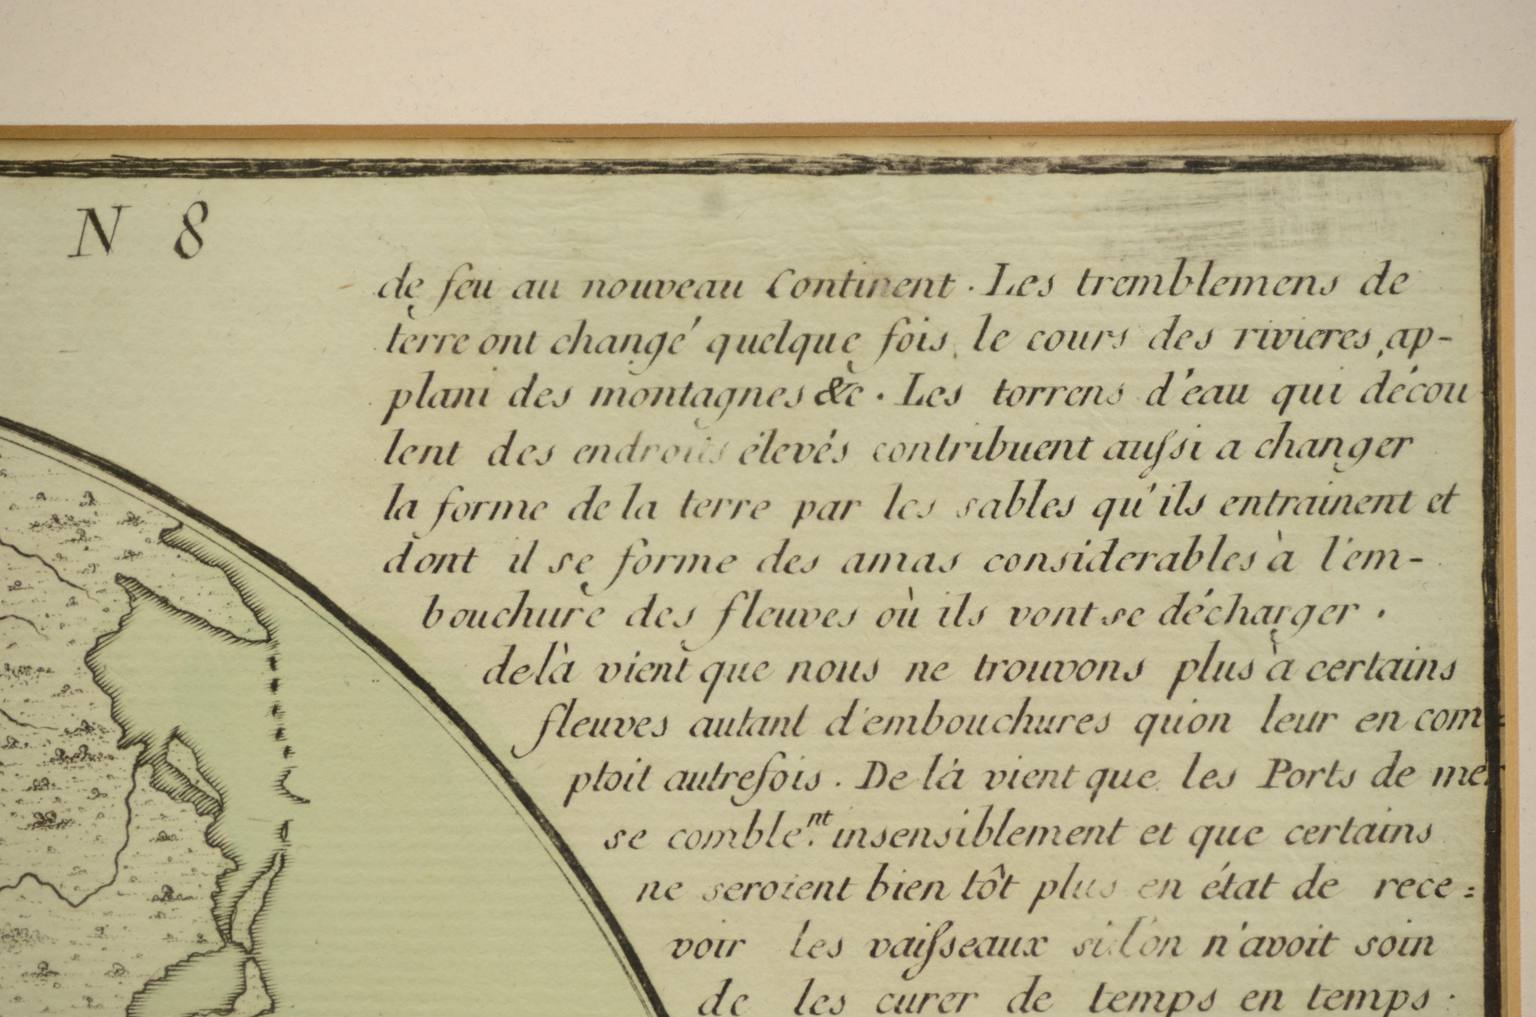 N 8
de feu au nouveau Continent. Les tremblemens de
terre ont changé quelque fois le cours des rivieres, ap-
plani des montagnes &c. Les torrens d'eau qui décou
lent des endroits élevés contribuent aussi a changer
la forme de la terre par les sables qu'ils entrainent et
dont il se forme des amas considerables à l'em-
bouchure des fleuves où ils vont se décharger.
delà vient que nous ne trouvons plus à certains
fleuves autant d'embouchures qu'on leur en com=
ptoit autrefois. De là vient que les Ports de mer
se comble.nt insensiblement et que certains
ne seroient bien tôt plus en état de rece=
voir les vaisseaux si l'on n'avoit soin
de les curer de temps en temps.